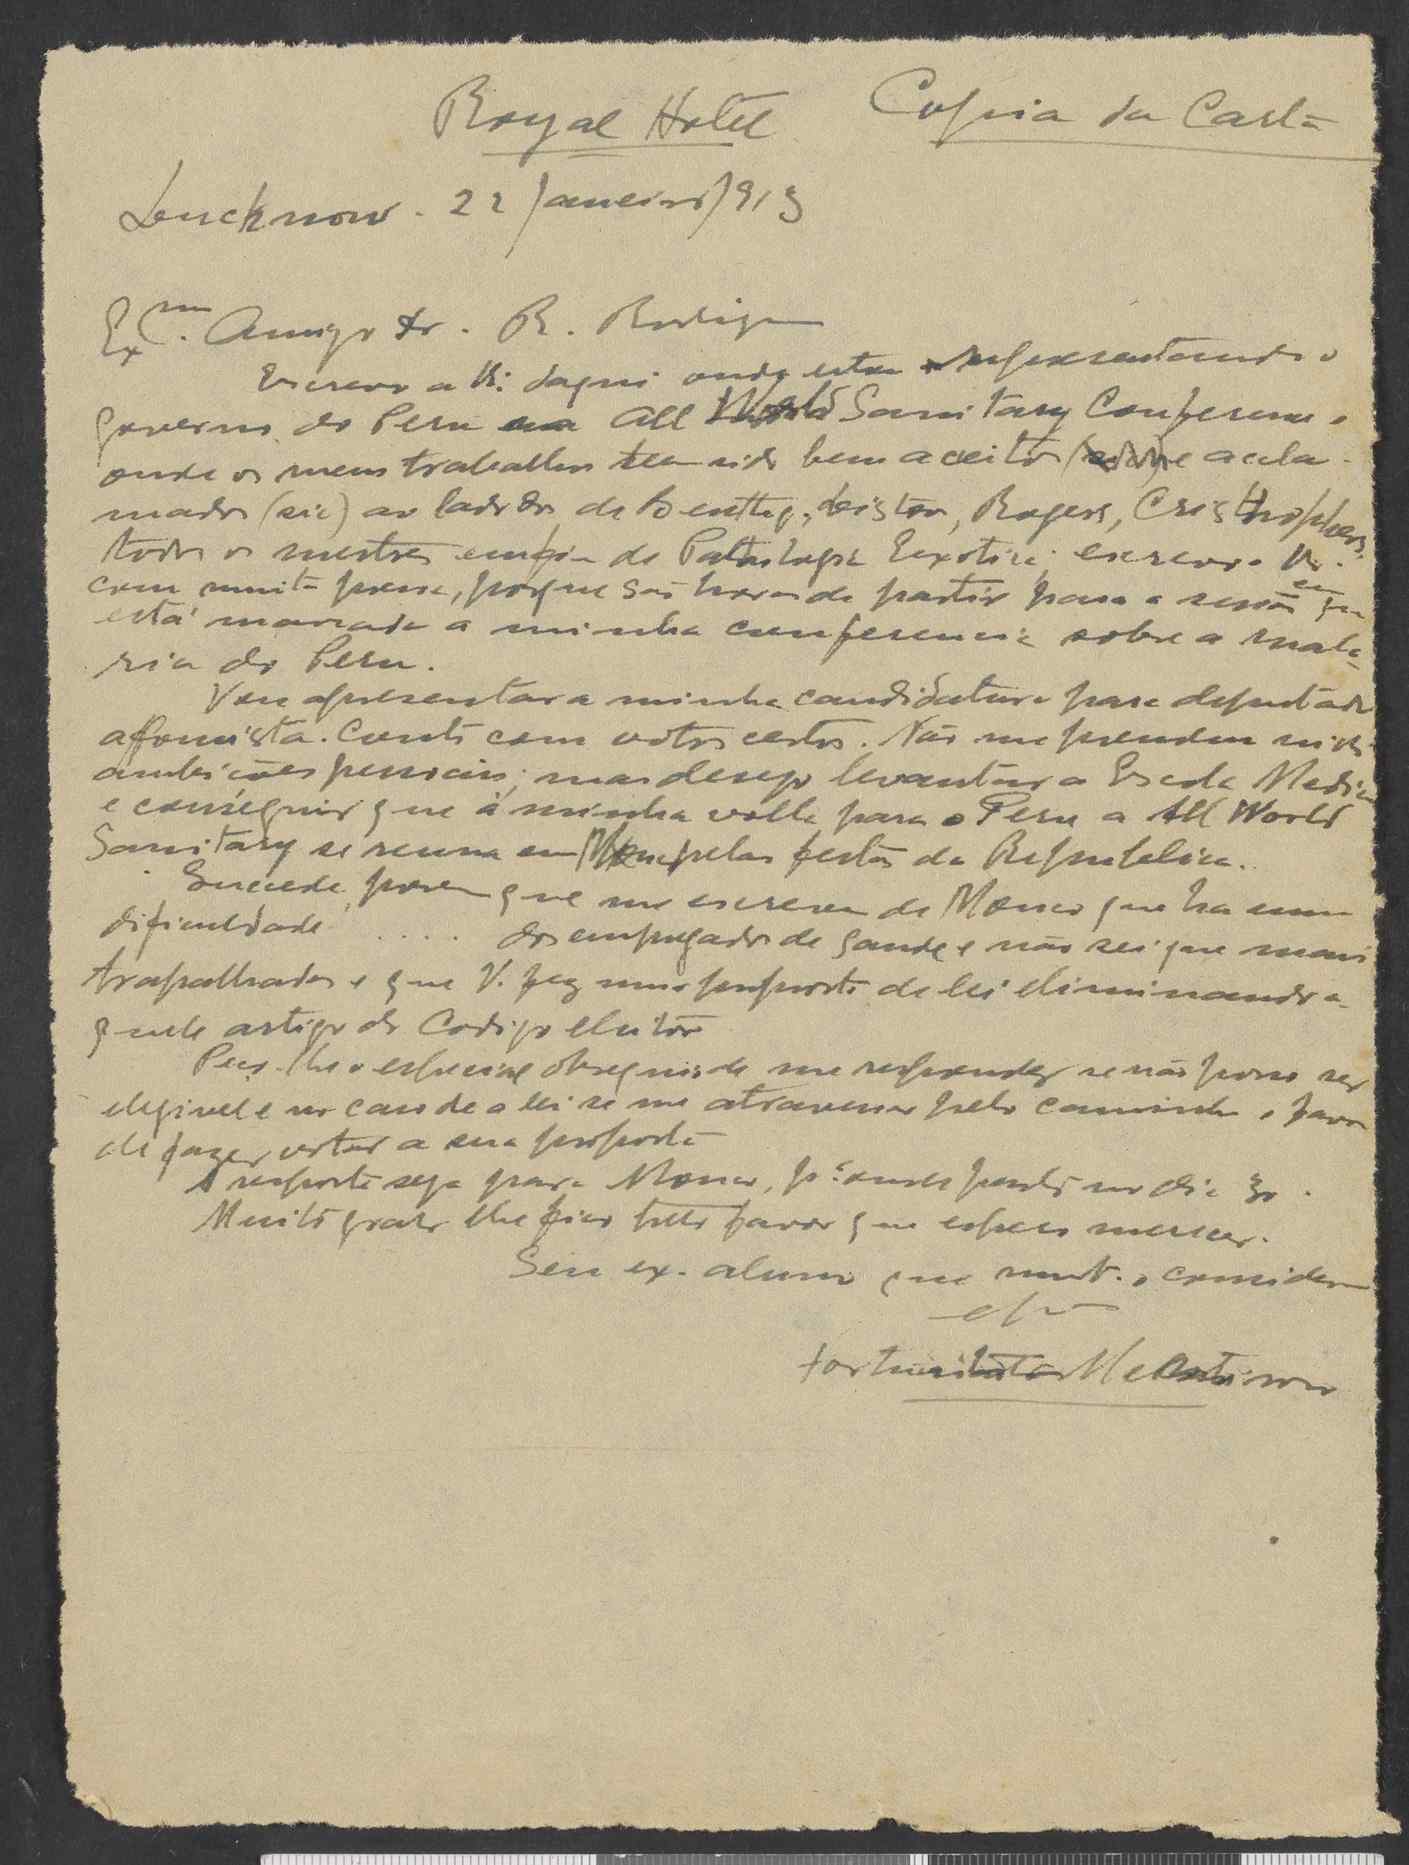 Royal Hotel Copia da Carta
Lucknow. 22 Janeiro 1913
Exmo. Amigo Dr. R. Rodrigues
Escrevo a V. daqui onde estou representando o
governo do Peru na All World Sanitary Conference,
onde os meus trabalhos tem sido bem aceitos e acla-
mados (sic) ao lado dos de Leiston, Rogers, Cristhophers,
todos os mestres emfim de Patologia Exotica; escrevo a V.
com muita pressa, porque são horas de partir para a sessão em que
está marcada a minha conferencia sobre a mala-
ria do Peru.
Vou apresentar a minha candidatura para deputado
afonsista. Conto com votos certos. Não me prendem nisto
ambições pessoais; mas desejo levantar a Escola Medica
e conseguir que á minha volta para o Peru a All World
Sanitary se reuna em pelas festas da Republica.
Sucede, porem que me escrevem de que ha uma
dificuldade ..... dos empregados de saude e não sei que mais
trapalhadas e que V. fez uma proposta de lei eliminando a-
quele artigo do Codigo eleitoral
Peço-lhe o especial obsequio de me responder se não posso ser
elegivel e no caso de a lei se me atravessar pelo caminho o favor
de fazer votar a sua proposta
A resposta seja para p.ª onde parto no dia 30.
Muito grato lhe fico pelo favor que espero merecer.
Seu ex-aluno que mt.º o considera